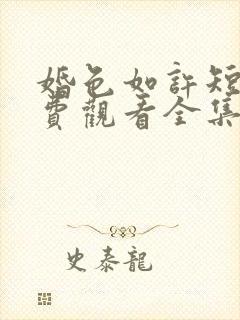 婚色如許短
費觀看全集
史泰龍